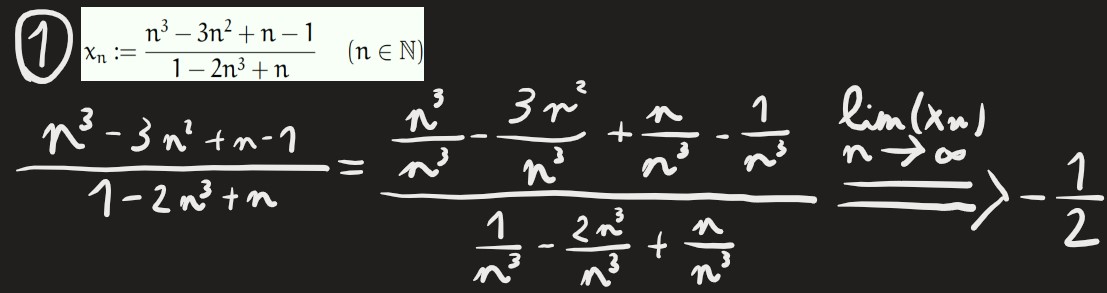 ① xₙ := (n³ − 3n² + n − 1)/(1 − 2n³ + n) (n ∈ ℕ)
(n³ − 3n² + n − 1)/(1 − 2n³ + n) = (n³/n³ − 3n²/n³ + n/n³ − 1/n³)/(1/n³ − 2n³/n³ + n/n³) lim(xₙ) n→∞ ⟹ −1/2